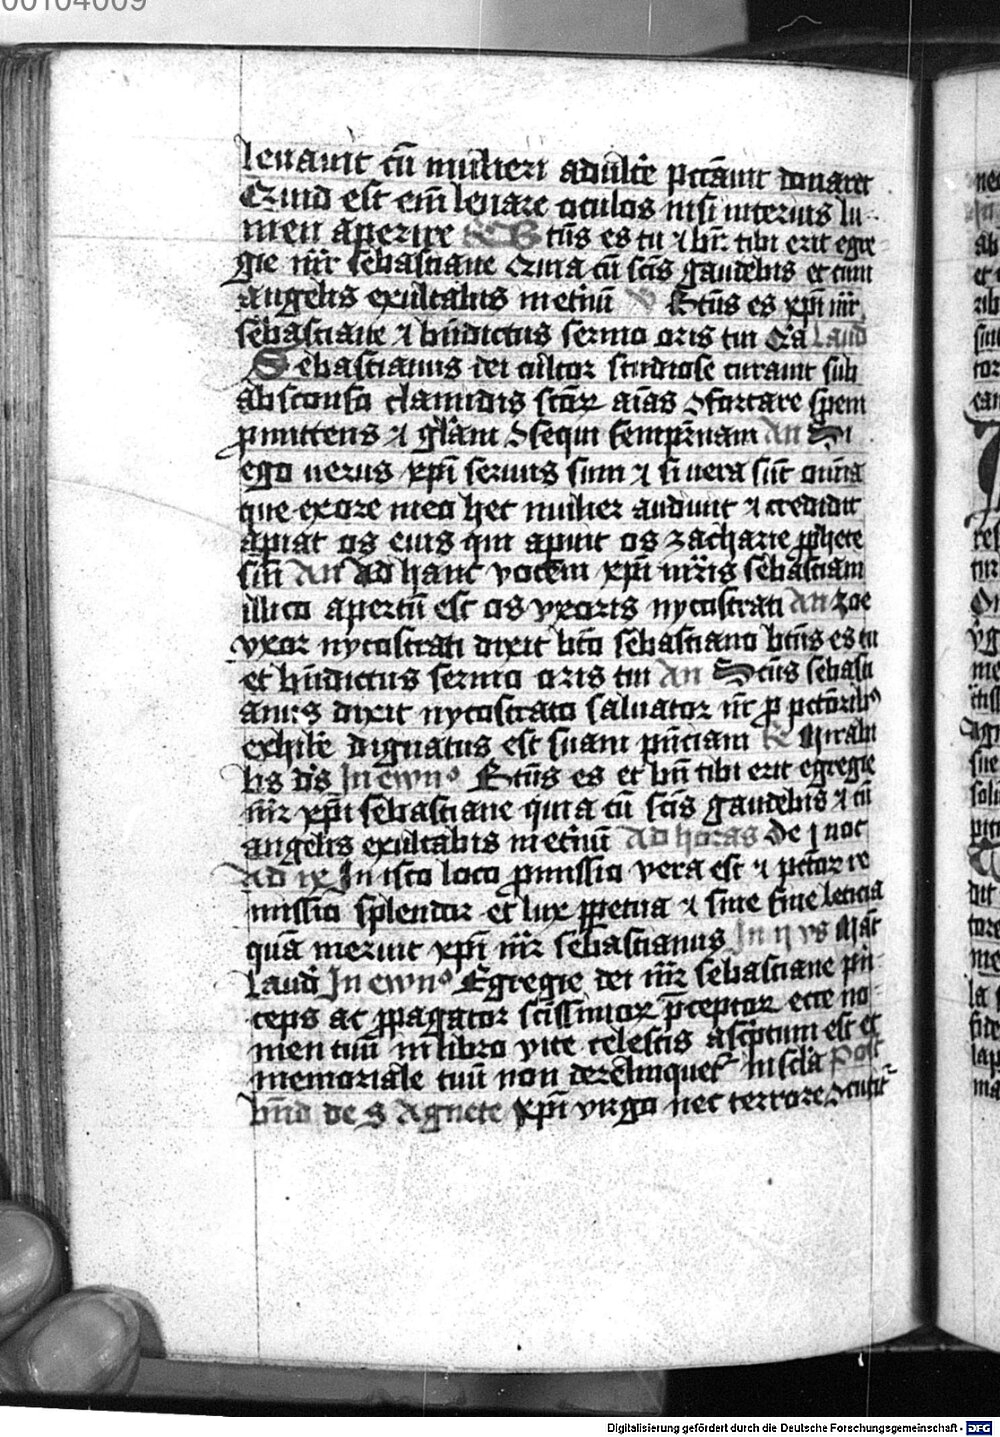 00104009
leuauit cū mulieri adult'e pctā uīt donaret
Quid est eīm leuare oculos nisi interius lu-
men aperire Btūs es tu ⁊ bn̄ tibi erit egre
gie mr̄ sebastiane Quia cū sctīs gaudebis et cum
angelis exultabis in et'nū V Btūs es xpī mr̄
sebastiane ⁊ bn̄dictus sermo oris tui Or̄a Laud
Sebastianus dei cultor studiose curauit sub
absconso clamidis sctōꝝ aīas ɔfortare spem
ꝓmittens ⁊ gl'am ɔsequi sempit'nam An Si
ego uerus xpī seruus sum ⁊ si uera sūt om̄ia
que ex ore meo hec mulier audiuit ⁊ credidit
apiat os eius qui apuit os zacharie ꝓphete
sui An Ad hanc vocem xpī mr̄is sebastiani
illico apertū est os vxoris nycostrati An Zoe
vxor nycostrati dixit bt̄o sebastiano bt̄us es tu
et bn̄dictus sermo oris tui An Sctūs sebasti
anus dixit nycostrato saluator nr̄ ꝓ pctōribꝰ
exhib'e dignatus est suam pn̄ciam R Mirabi
lis d's In ewnᵒ Btūs es et bn̄ tibi erit egregie
mr̄ xpī sebastiane quia cū sctīs gaudebis ⁊ cū
angelis exultabis in et'nū Ad horas de j noc
Ad ix In isto loco ꝓmissio vera est ⁊ pctōꝝ re
missio splendor et lux ꝑpetua ⁊ sine fine leticia
quā meruit xpī mr̄ sebastianus In ij vs Mag̅t
Laud' In ewnᵒ Egregie dei mr̄ sebastiane pn̄-
ceps ac ꝓpagator sctīssimoꝝ p̄ceptoꝝ ecce no-
men tuū in libro vite celestis ascptum est et
memoriale tuū non derelinquet' in sc'la Post
bn̄d de S Agnete xpī virgo nec terrore
Digitalisierung gefördert durch die Deutsche Forschungsgemeinschaft - DFG